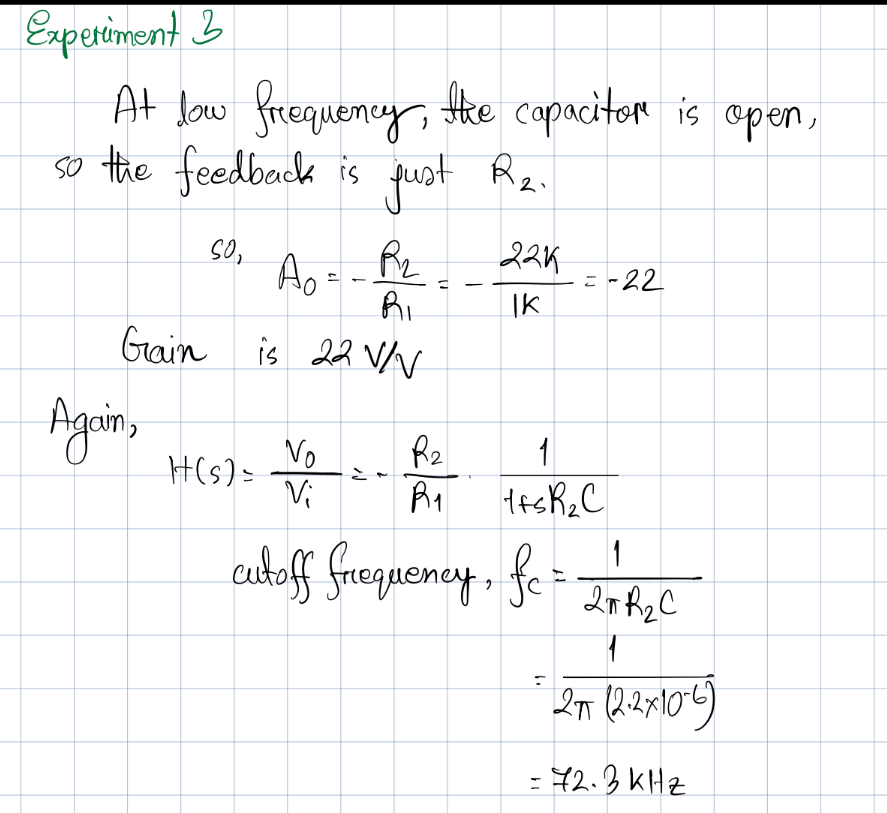 Experiment 3
At low frequency, the capacitor is open,
so the feedback is just R₂.
so, A₀ = - R₂/R₁ = - 22K/1K = -22
Gain is 22 V/V
Again,
H(s) = V₀/Vᵢ = - R₂/R₁ · 1/(1+sR₂C)
cutoff frequency, f_c = 1/(2πR₂C)
= 1/(2π (2.2×10⁻⁶))
= 72.3 kHz